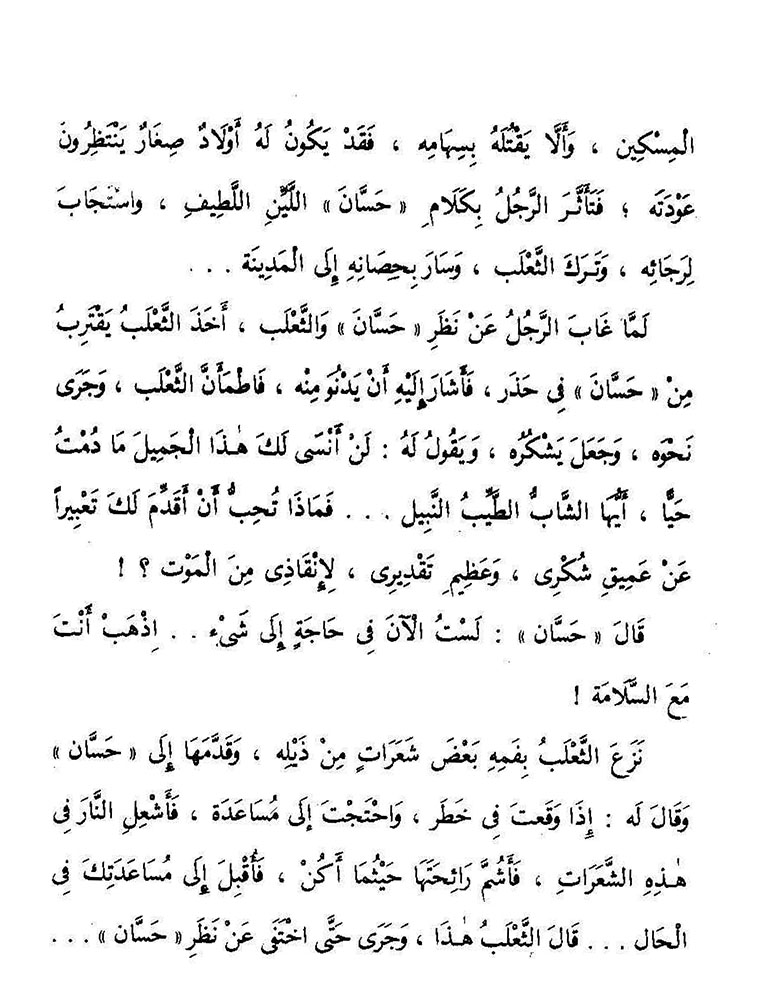 الْمِسْكِين ، وَأَلَّا يَقْتُلَهُ بِسِهَامِه ، فَقَدْ يَكُونُ لَهُ أَوْلَادٌ صِغَارٌ يَنْتَظِرُونَ
عَوْدَتَه ؛ فَتَأَثَّرَ الرَّجُلُ بِكَلَامِ « حَسَّانَ » اللَّيِّنِ اللَّطِيفِ ، واسْتَجَابَ
لِرَجَائِه ، وَتَرَكَ الثَّعْلَب ، وَسَارَ بِحِصَانِهِ إِلَى الْمَدِينَة . . .
لَمَّا غَابَ الرَّجُلُ عَنْ نَظَرِ « حَسَّانَ » وَالثَّعْلَب ، أَخَذَ الثَّعْلَبُ يَقْتَرِبُ
مِنْ « حَسَّانَ » فِى حَذَر ، فَأَشَارَ إِلَيْهِ أَنْ يَدْنُوَ مِنْه ، فَاطْمَأَنَّ الثَّعْلَب ، وَجَرَى
نَحْوَه ، وَجَعَلَ يَشْكُرُه ، وَيَقُولُ لَهُ : لَنْ أَنْسَى لَكَ هٰذَا الْجَمِيلَ مَا دُمْتُ
حَيًّا ، أَيُّهَا الشَّابُّ الطَّيِّبُ النَّبِيل . . . فَمَاذَا تُحِبُّ أَنْ أُقَدِّمَ لَكَ تَعْبِيراً
عَنْ عَمِيقِ شُكْرِى ، وَعَظِيمِ تَقْدِيرِى ، لِإِنْقَاذِى مِنَ الْمَوْت ؟ !
قَالَ « حَسَّان » : لَسْتُ الْآنَ فِى حَاجَةٍ إِلَى شَىْءٍ . . اِذْهَبْ أَنْتَ
مَعَ السَّلَامَة !
نَزَعَ الثَّعْلَبُ بِفَمِهِ بَعْضَ شَعَرَاتٍ مِنْ ذَيْلِه ، وَقَدَّمَهَا إِلَى « حَسَّان »
وَقَالَ لَه : إِذَا وَقَعتَ فِى خَطَر ، وَاحْتَجْتَ إِلَى مُسَاعَدَة ، فَأَشْعِلِ النَّارَ فِى
هٰذِهِ الشَّعَرَاتِ ، فَأَشُمَّ رَائِحَتَهَا حَيْثُمَا أَكُنْ ، فَأُقْبِلَ إِلَى مُسَاعَدَتِكَ فِى
الْحَال . . . قَالَ الثَّعْلَبُ هٰذَا ، وَجَرَى حَتَّى اخْتَفَى عَنْ نَظَرِ « حَسَّان » . . .